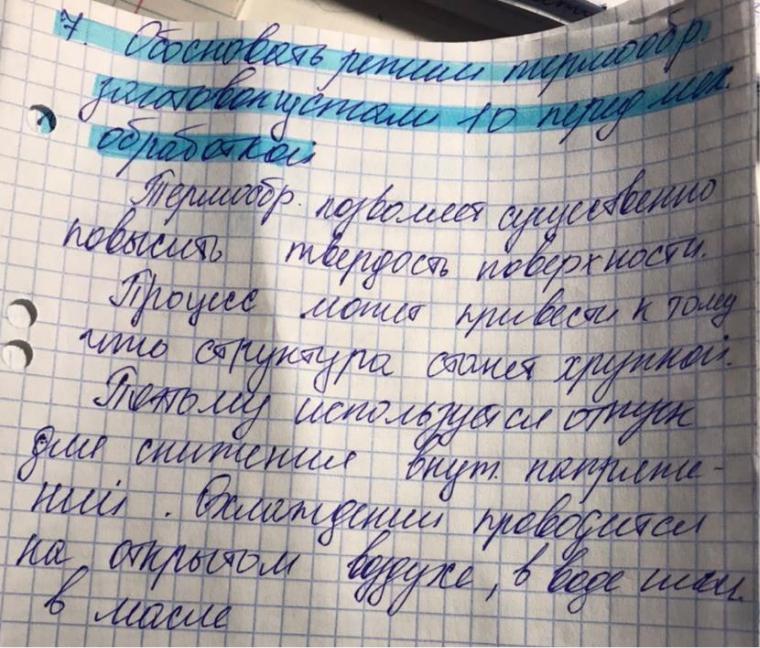 7. Обосновать режим термообр.
заготовок из стали 10 перед мех.
обработкой
Термообр. позволяет существенно
повысить твердость поверхности.
Процесс может привести к тому
что структура станет хрупкой.
Поэтому используется отпуск
для снижения внут. напряже-
ний. Охлаждении проводится
на открытом воздухе, в воде или
в масле